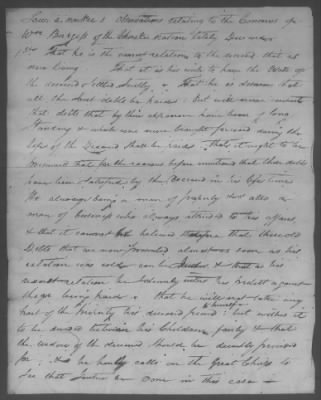 observations relating to the Concerns of
Wm Burgess of the Cherokee Nation lately Deceased
1st That he is the nearest relation of the deceased that is
now living That it is his wish to have the Estate of
the deceased settled & That he is desirous that
all the Just debts be paid but will never consent
that debts that by their appearance have been of long
Standing & which was never brought forward during the
life of the Deceased Shall be paid that it ought to be
presumed that for the reasons before mentioned that these debts
have been satisfied by the Deceased in his life time
He always being a man of property & also a
man of business who always attended to his affairs
& that it cannot be believed therefore that these old
Debts that are now presented almost as soon as his
relation was cold can be & that as his
nearest relation he solemnly enters his protest against
these being paid & that he will not take any
part of the property his deceased friend to himself but wishes it
to be divided between his Children fairly & that
the widow of the deceased should be decently provided
for And he hereby calls on the Great Chiefs to
See that Justice be done in this case